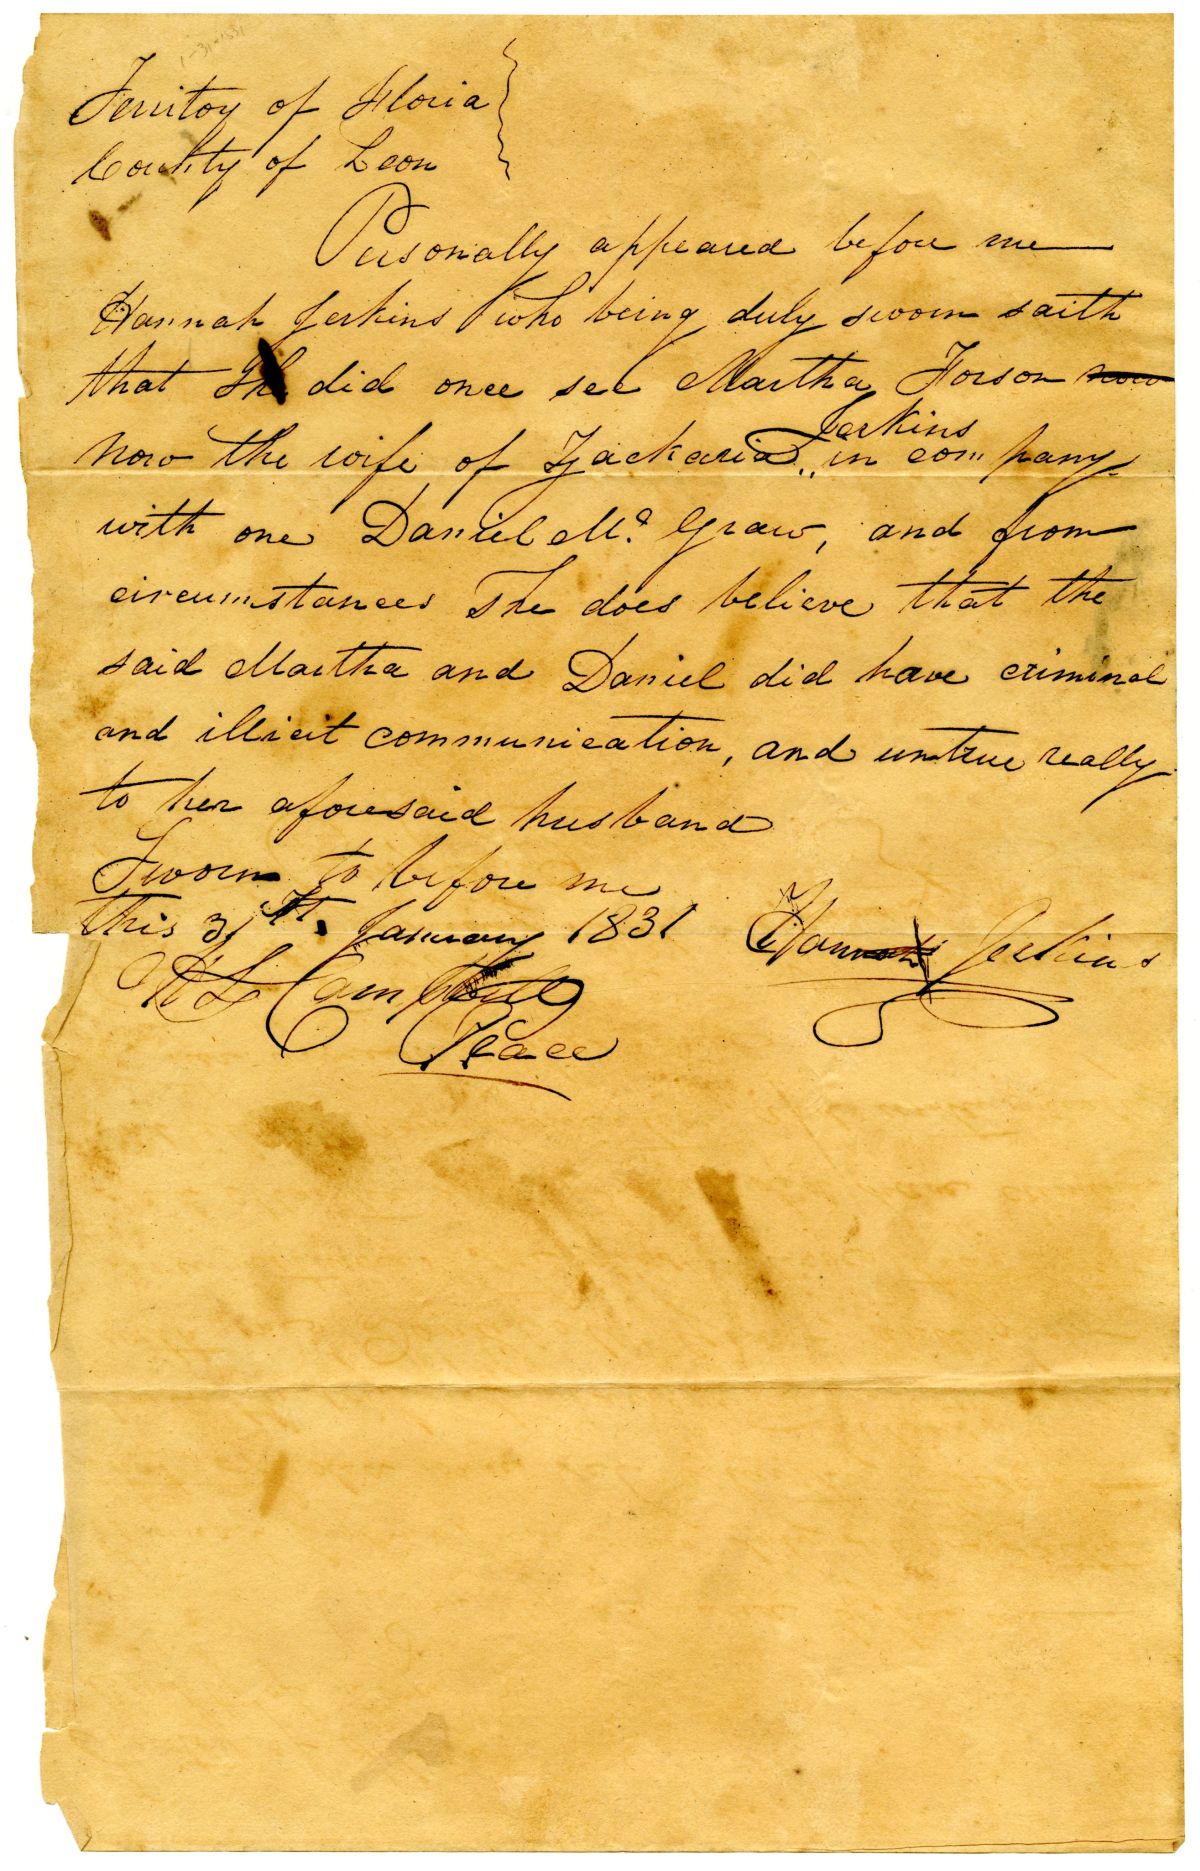 1-31-1831
Territoy of Floria
County of Leon
Personally appeared before me
Hannah Jerkins who being duly sworn saith
that She did once see Martha Horson now
now the wife of Zackaria Jerkins in company
with one Daniel Mc. Graw, and from
circumstances She does believe that the
said Martha and Daniel did have criminal
and illicit communication, and untrue really
to her aforesaid husband
Sworn to before me
this 31st. January 1831
Hannah Jerkins
Campbell
Peace